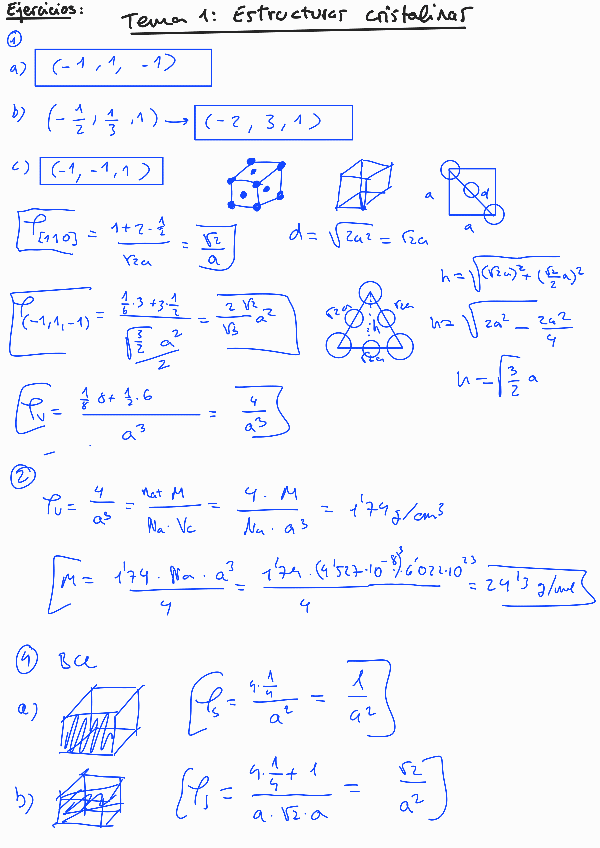 Ejercicios: Tema 1: Estructuras cristalinas
①
a) (-1, 1, -1)
b) (-1/2, 1/3, 1) → (-2, 3, 1)
c) (-1, -1, 1)
a d a
ρ[110] = (1+2·1/2)/(√2a) = √2/a d = √(2a²) = √2a
h = √((√2a)² + (√2/2 a)²)
ρ(-1,1,-1) = (1/6·3 + 3·1/2)/(√(3/2) a²/2) = (2√2/√3) a² √2a h √2a √2a h = √(2a² - 2a²/4)
h = √(3/2) a
ρv = (1/8·8 + 1/2·6)/a³ = 4/a³
②
ρv = 4/a³ = (nat M)/(Na·Vc) = (4·M)/(Na·a³) = 1'74 g/cm³
M = (1'74·Na·a³)/4 = (1'74·(4'527·10⁻⁸)³·6'022·10²³)/4 = 24'3 g/mol
④ BCC
a) ρs = (4·1/4)/a² = 1/a²
b) ρs = (4·1/4 + 1)/(a·√2·a) = √2/a²